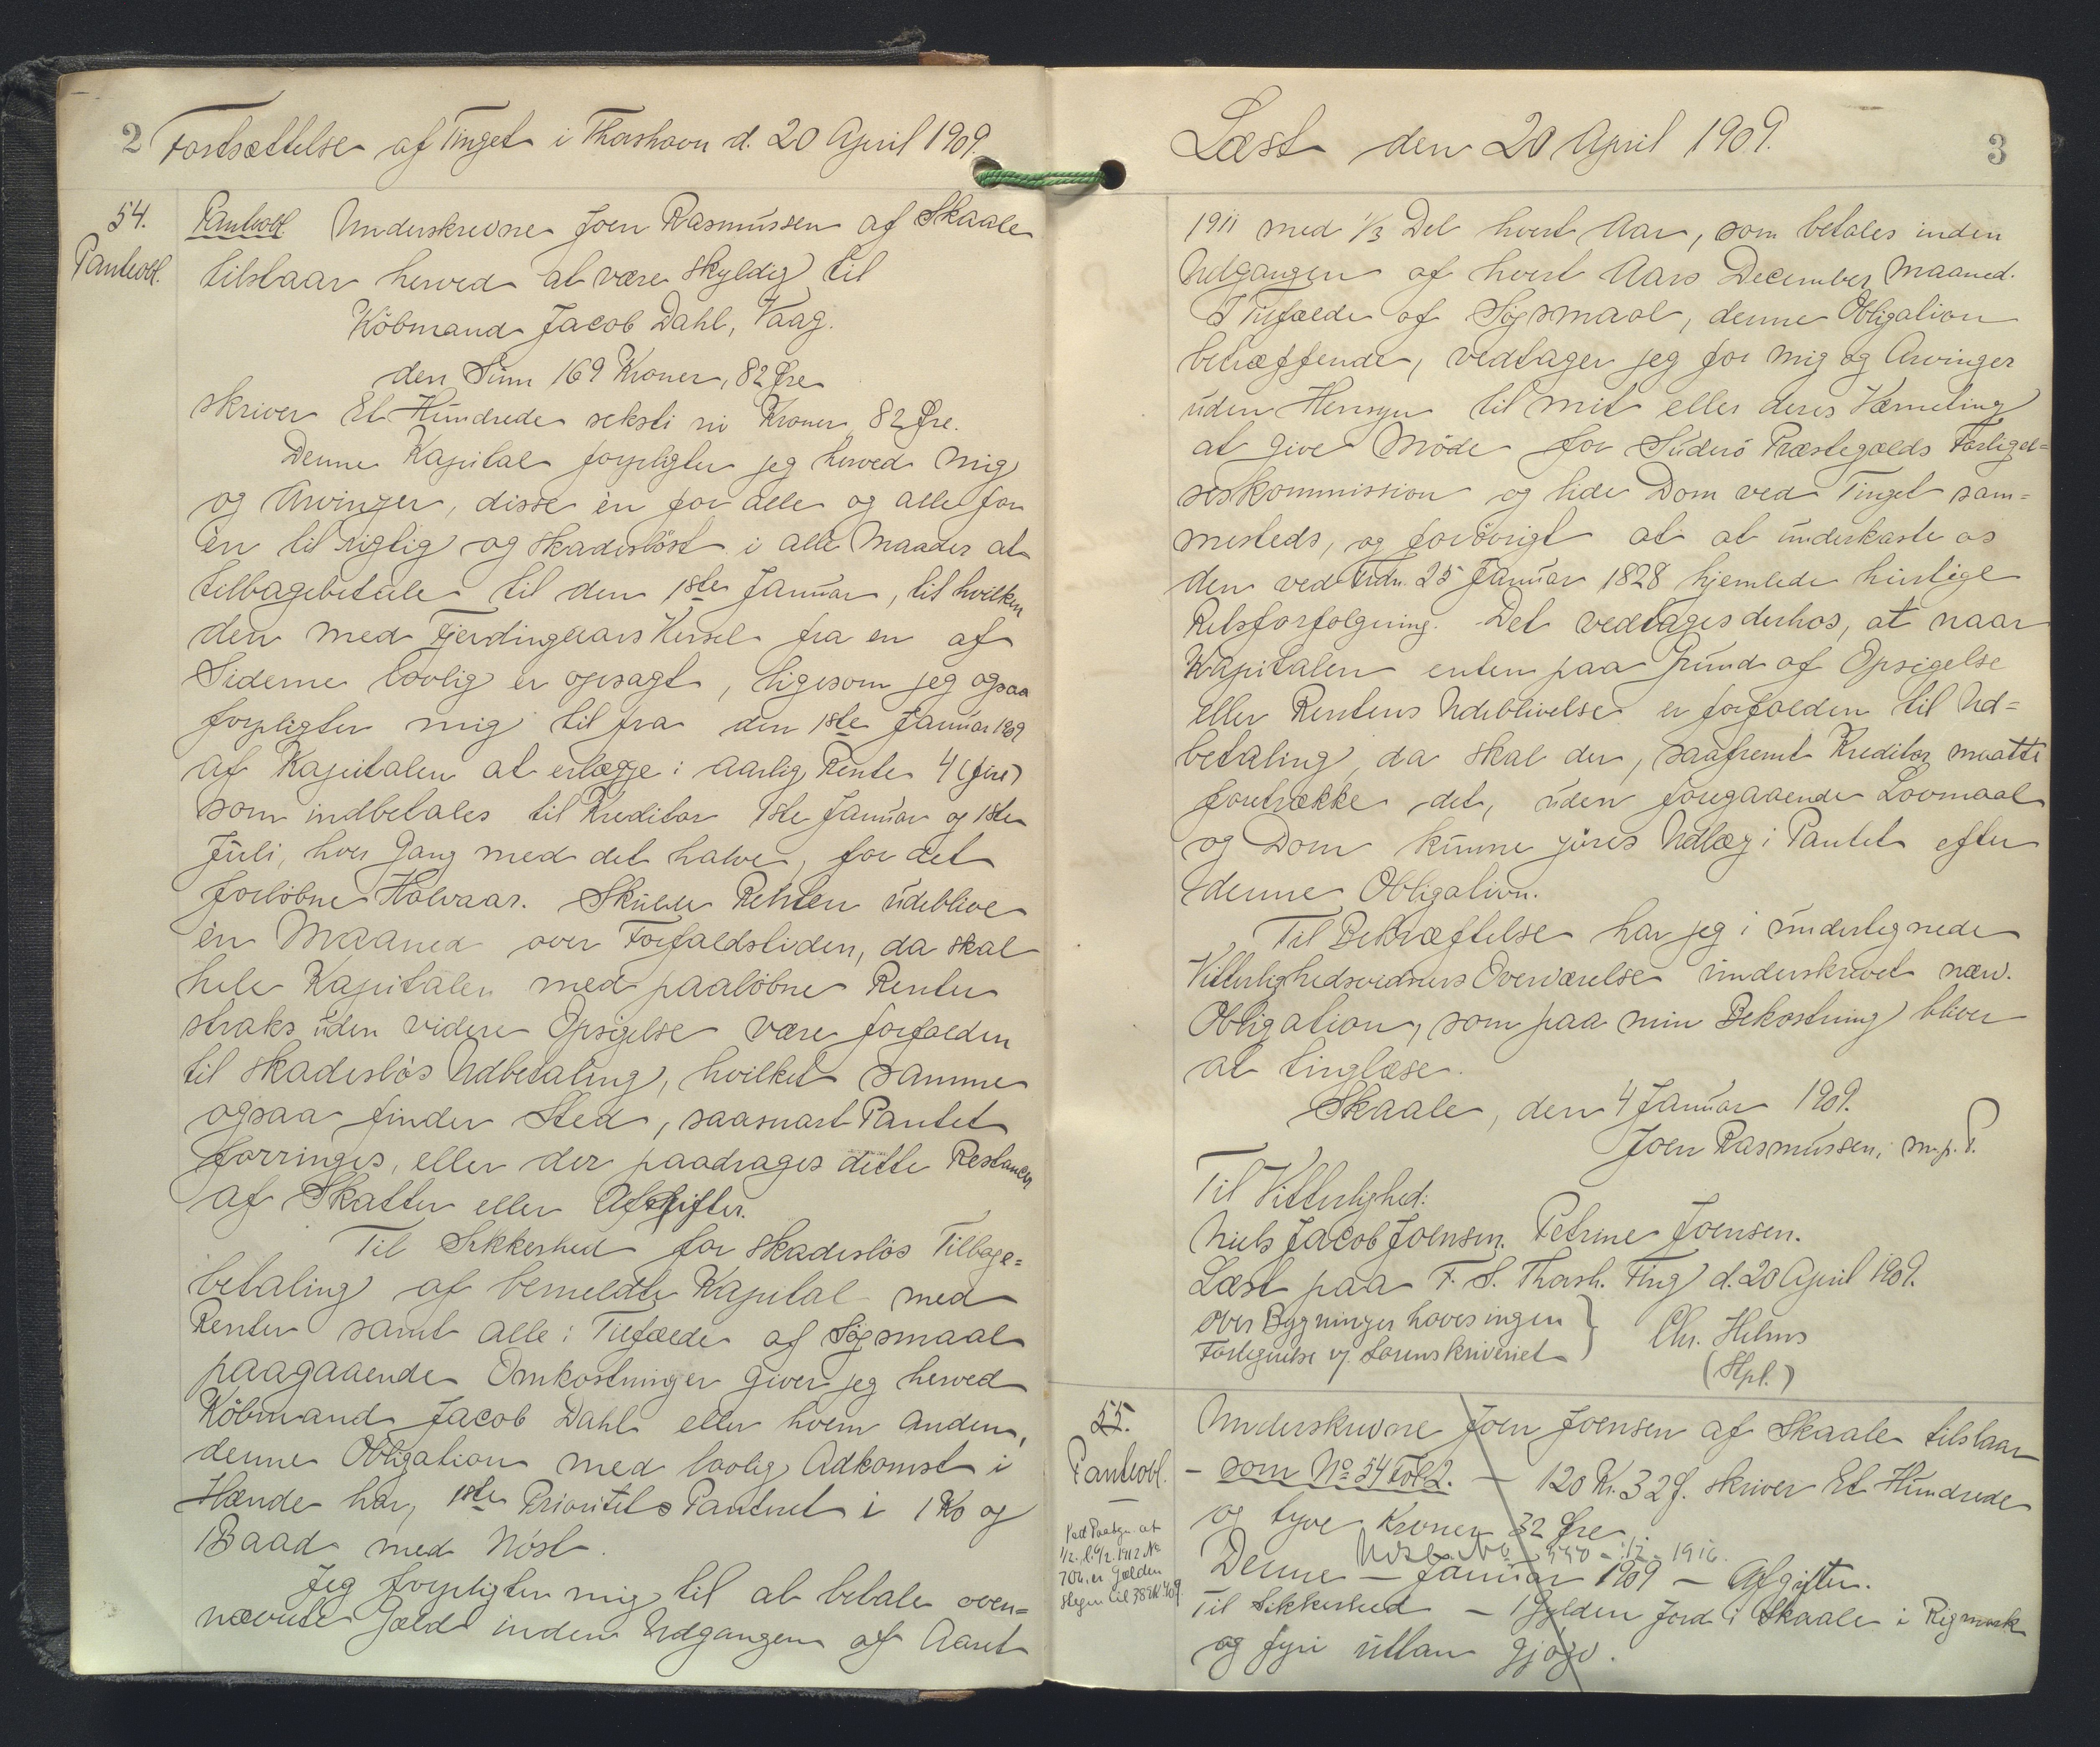 2
Fortsættelse af Tinget i Thorshavn d. 20 April 1909.
54.
Panteobl.
Panteobl. Underskrevne Joen Rasmussen af Skaale
tilstaar herved at være skyldig til
Köbmand Jacob Dahl, Vaag.
den Sum 169 Kroner, 82 Øre
skriver Et Hundrede seksti ni Kroner 82 Øre.
Denne Kapital forpligter jeg herved mig
og Arvinger, disse èn for alle og alle for
èn til rigtig og skadeslöst i alle Maader at
tilbagebetale til den 1ste Januar, til hvilken
den med Fjerdingaars Varsel fra en af
Siderne lovlig er opsagt, ligesom jeg ogsaa
forpligter mig til fra den 1ste Januar 1909
af Kapitalen at erlægge i aarlig Rente 4 (fire)
som indbetales til Kreditor 1ste Januar og 1ste
Juli, hver Gang med det halve, for det
forlöbne Halvaar. Skulde Renten udeblive
èn Maaned over Forfaldstiden, da skal
hele Kapitalen med paalöbne Renter
straks uden videre Opsigelse være forfalden
til skadeslös Udbetaling, hvilket samme
ogsaa finder Sted, saasnart Pantet
forringes, eller der paadrages dette Restancer
af Skatter eller Afgifter.
Til Sikkerhed for skadeslös Tilbage=
betaling af bemeldte Kapital med
Renter samt alle i Tilfælde af Søgsmaal
paagaaende Omkostninger giver jeg herved
Köbmand Jacob Dahl eller hvem anden,
denne Obligation med lovlig Adkomst i
Hænde har, 1ste Prioritets Panteret i 1 Ko og
1 Baad med Nöst.
Jeg forpligter mig til at betale oven=
nævnte Gæld inden Udgangen af Aaret
Læst den 20 April 1909.
3
1911 med 1/3 Del hvert Aar, som betales inden
Udgangen af hvert Aars December Maaned.
I Tilfælde af Søgsmaal, denne Obligation
betræffende, vedtager jeg for mig og Arvinger
uden Hensyn til mit eller deres Værneting
at give Möde for Suderö Præstegælds Forligel=
seskommission og lide Dom ved Tinget sam=
mesteds, og forövrigt at at underkaste os
den ved Frdn. 25 Januar 1828 hjemlede hurtige
Retsforfølgning. Det vedtages derhos, at naar
Kapitalen enten paa Grund af Opsigelse
eller Rentens Udeblivelse er forfalden til Ud=
betaling, da skal der, saafremt Kreditor maatte
foretrække det, uden foregaaende Lovmaal
og Dom kunne göres Udlæg i Pantet efter
denne Obligation.
Til Bekræftelse har jeg i undertegnede
Vitterlighedsvidners Overværelse underskrevet nærv.
Obligation, som paa min Bekostning bliver
at tinglæse.
Skaale, den 4 Januar 1909.
Joen Rasmussen, m. p. P.
Til Vitterlighed:
Niels Jacob Joensen. Petrine Joensen.
Læst paa F. S. Thorsh. Ting d. 20 April 1909.
Over Bygninger haves ingen
Fortegnelse v. Sorenskriveriet
Chr. Helms
(Hpl.)
55.
Panteobl.
Underskrevne Joen Joensen af Skaale tilstaar
– som No 54 Fol 2. – 120 Kr. 32 Ø. skriver Et Hundrede
og tyve Kroner 32 Øre
Udsl. No 550 - 1916.
Denne – Januar 1909 – Afgifter.
Til Sikkerhed – 1 Gylden Jord i Skaale i Rigmark
og fyri uttan Gjógv.
Ved Paategn. at
1/2, l. 6/2 1912 No
706, er Gælden
stegen til 389 Kr